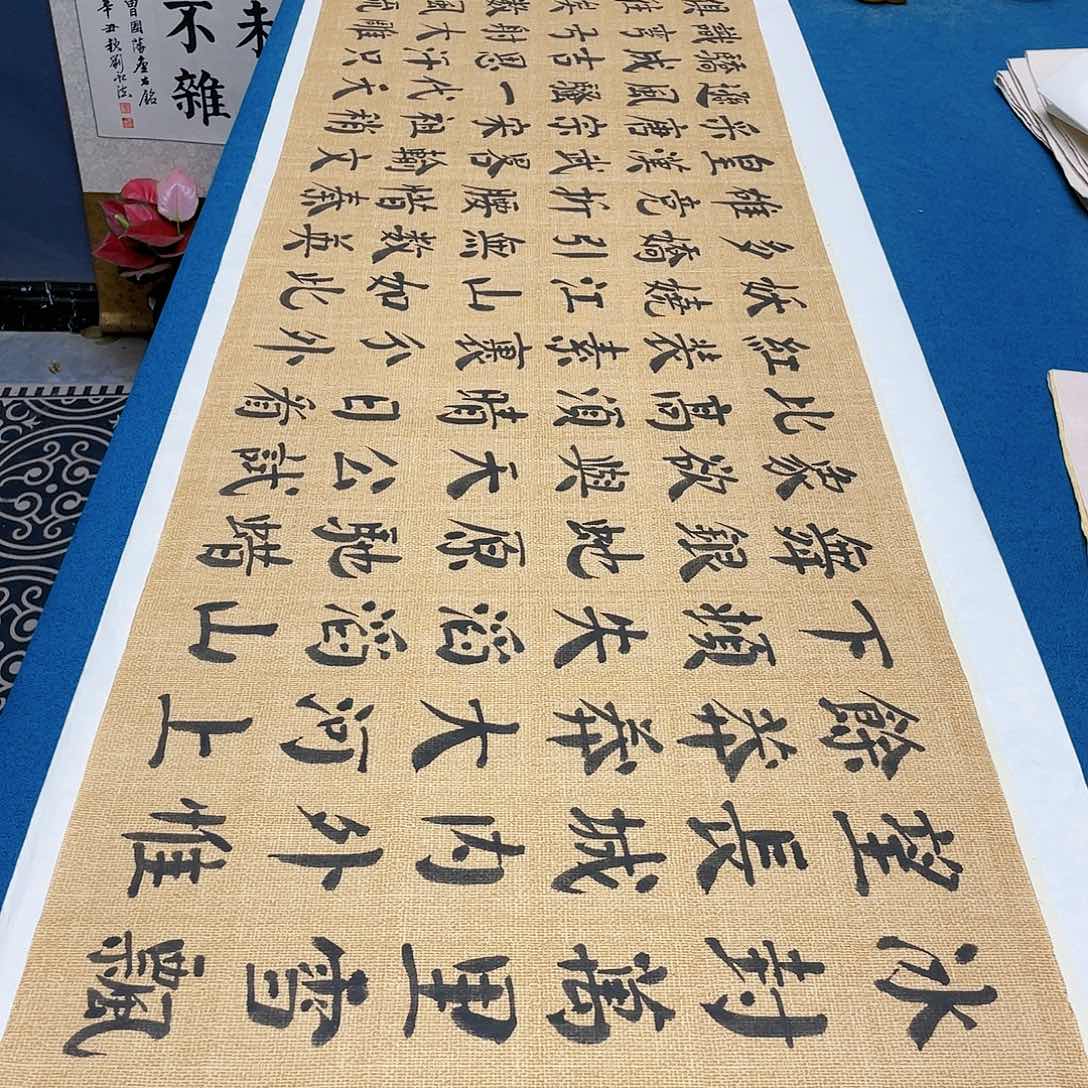 冰封萬里雪飄
望長城内外惟
餘莽莽大河上
下頓失滔滔山
舞銀蛇原馳蜡
象欲與天公試
比高須晴日看
紅裝素裹分外
妖嬈江山如此
多嬌引無數英
雄竞折腰惜秦
皇漢武畧輸文
采唐宗宋祖稍
遜風騷一代天
驕成吉思汗只
識彎弓射大雕
俱往矣數風流
未
不雜
曾國藩座右銘
辛丑秋劉